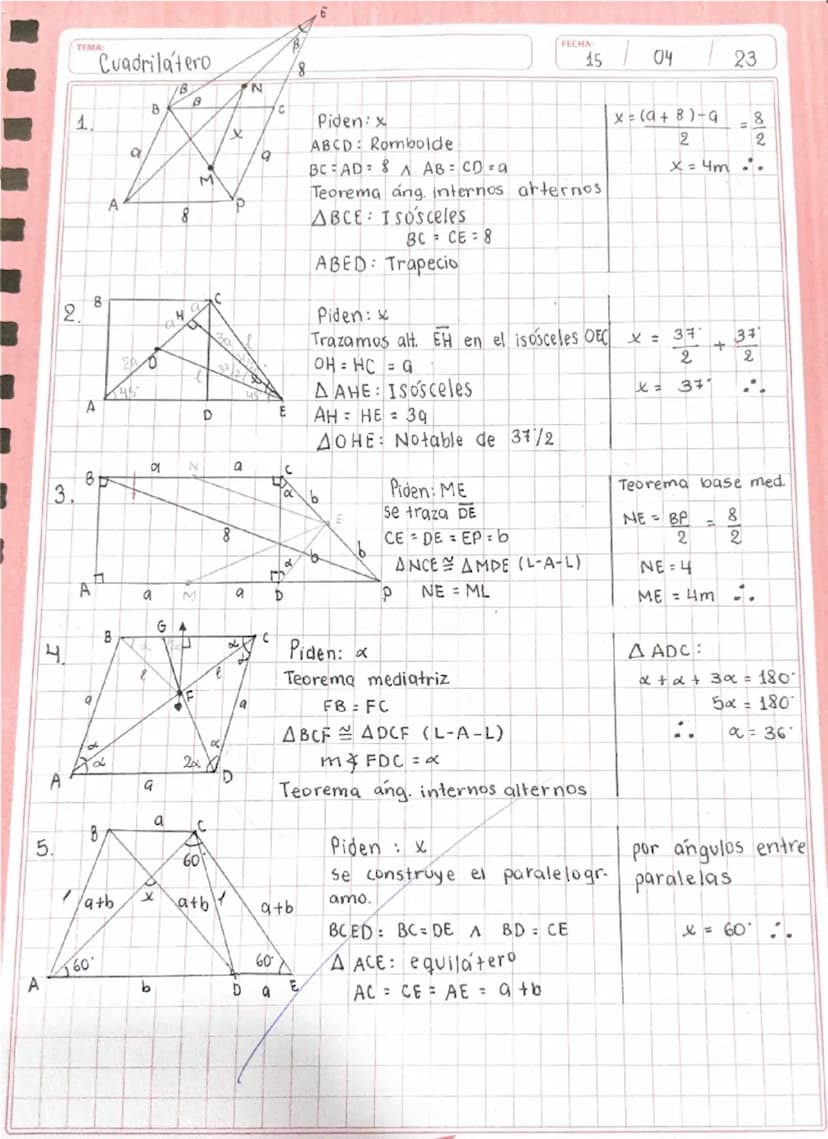 TEMA:
Cuadrilátero
FECHA:
15 / 04 / 23
1.
E
β
8
B
β
β
N
C
x
a
a
M
A
8
P
Piden: x
ABCD: Romboide
BC = AD = 8 ∧ AB = CD = a
Teorema áng. internos alternos
△BCE: Isósceles
BC = CE = 8
ABED: Trapecio
x = (a + 8) - a / 2 = 8 / 2
x = 4m ∴
2.
B
C
H
a
a
3a
l
2a
O
l
37/2
x
45°
45°
A
D
E
Piden: x
Trazamos alt. EH en el isósceles OEC
OH = HC = a
△AHE: Isósceles
AH = HE = 3a
△OHE: Notable de 37°/2
x = 37° / 2 + 37° / 2
x = 37° ∴
3.
B
a
N
a
C
α
b
E
8
b
b
α
A
a
M
a
D
P
Piden: ME
se traza DE
CE = DE = EP = b
△NCE ≅ △MDE (L-A-L)
NE = ML
Teorema base med.
NE = BP / 2 = 8 / 2
NE = 4
ME = 4m ∴
4.
B
G
C
α
α
l
l
F
a
a
α
α
α
2α
A
a
D
Piden: α
Teorema mediatriz
FB = FC
△BCF ≅ △DCF (L-A-L)
m∢ FDC = α
Teorema áng. internos alternos
△ ADC:
α + α + 3α = 180°
5α = 180°
∴ α = 36°
5.
B
a
C
60°
a+b
x
a+b
a+b
60°
60°
A
b
D
a
E
Piden : x
Se construye el paralelogr-
amo.
BCED: BC = DE ∧ BD = CE
△ ACE: equilátero
AC = CE = AE = a+b
por ángulos entre
paralelas
x = 60° ∴